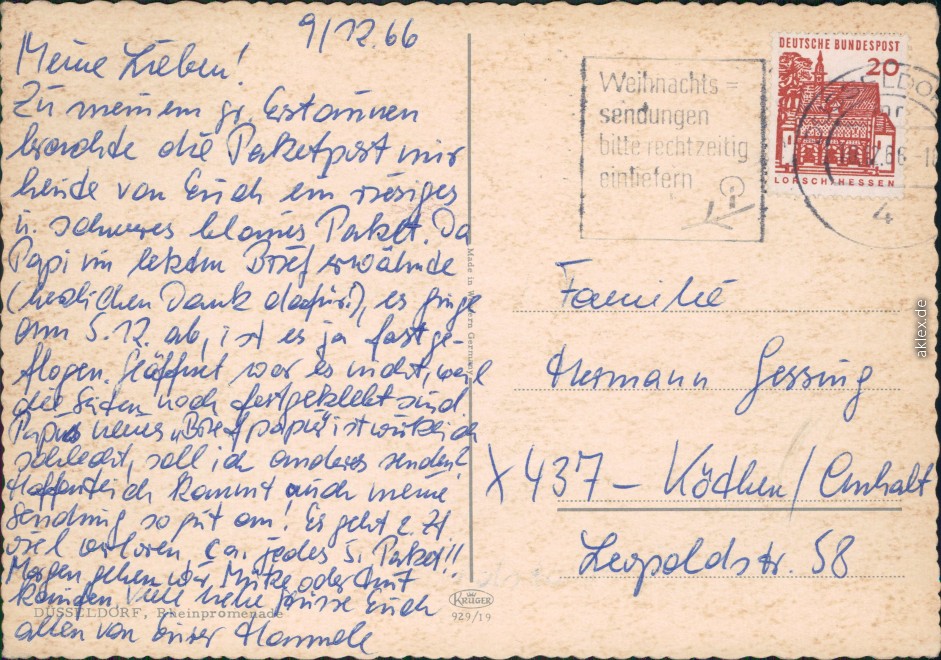 9/12.66
Meine Lieben!
Zu meinem gr. Erstaunen
brachte die Paketpost mir
heute von Euch ein riesiges
u. schweres blaues Paket. Da
Papi im letzten Brief erwähnte
(herzlichen Dank dafür!), es ginge
am 5.12. ab, ist es ja fast ge-
flogen. Geöffnet war es nicht, weil
die Seiten noch festgeklebt sind.
Papas neues „Briefpapier" ist wirklich
schlecht, soll ich anderes senden?
Hoffentlich kommt auch meine
Sendung so gut an! Es geht z. Zt
viel verloren, ca. jedes 5. Paket!!
Morgen gehen wir Mütze oder Hut
kaufen. Viele liebe Grüsse Euch
allen von Eurer
DÜSSELDORF, Rheinpromenade
Made in Western Germany
KRÜGER
929/19
Weihnachts=
sendungen
bitte rechtzeitig
einliefern
DEUTSCHE BUNDESPOST
20
LORSCH/HESSEN
4
Familie
Hermann Gessing
X 437 – Köthen/Anhalt
Leopoldstr. 58
aklex.de